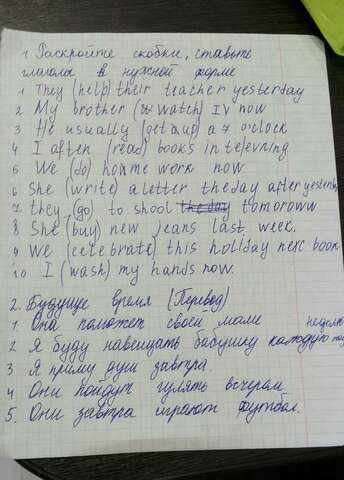 1 Раскройте скобки, ставьте
глаголы в нужной форме
1 They (help) their teacher yesterday
2 My brother (watch) TV now
3 He usually (get up) a 7 o'clock
4 I often (read) books in tefevning
5 We (do) home work now.
6 She (write) a letter the day after yesterday
7. they (go) to shool the day tomoroww
8 She (buy) new jeans last week.
9 We (celebrate) this holliday next book
10 I (wash) my hands now.
2. Будуще время (Перевод)
1. Она поможет своей маме
2 Я буду навещать бабушку каждую неделю
3 Я приму душ завтра.
4 Они пойдут гулять вечером
5. Они завтра играют футбол.